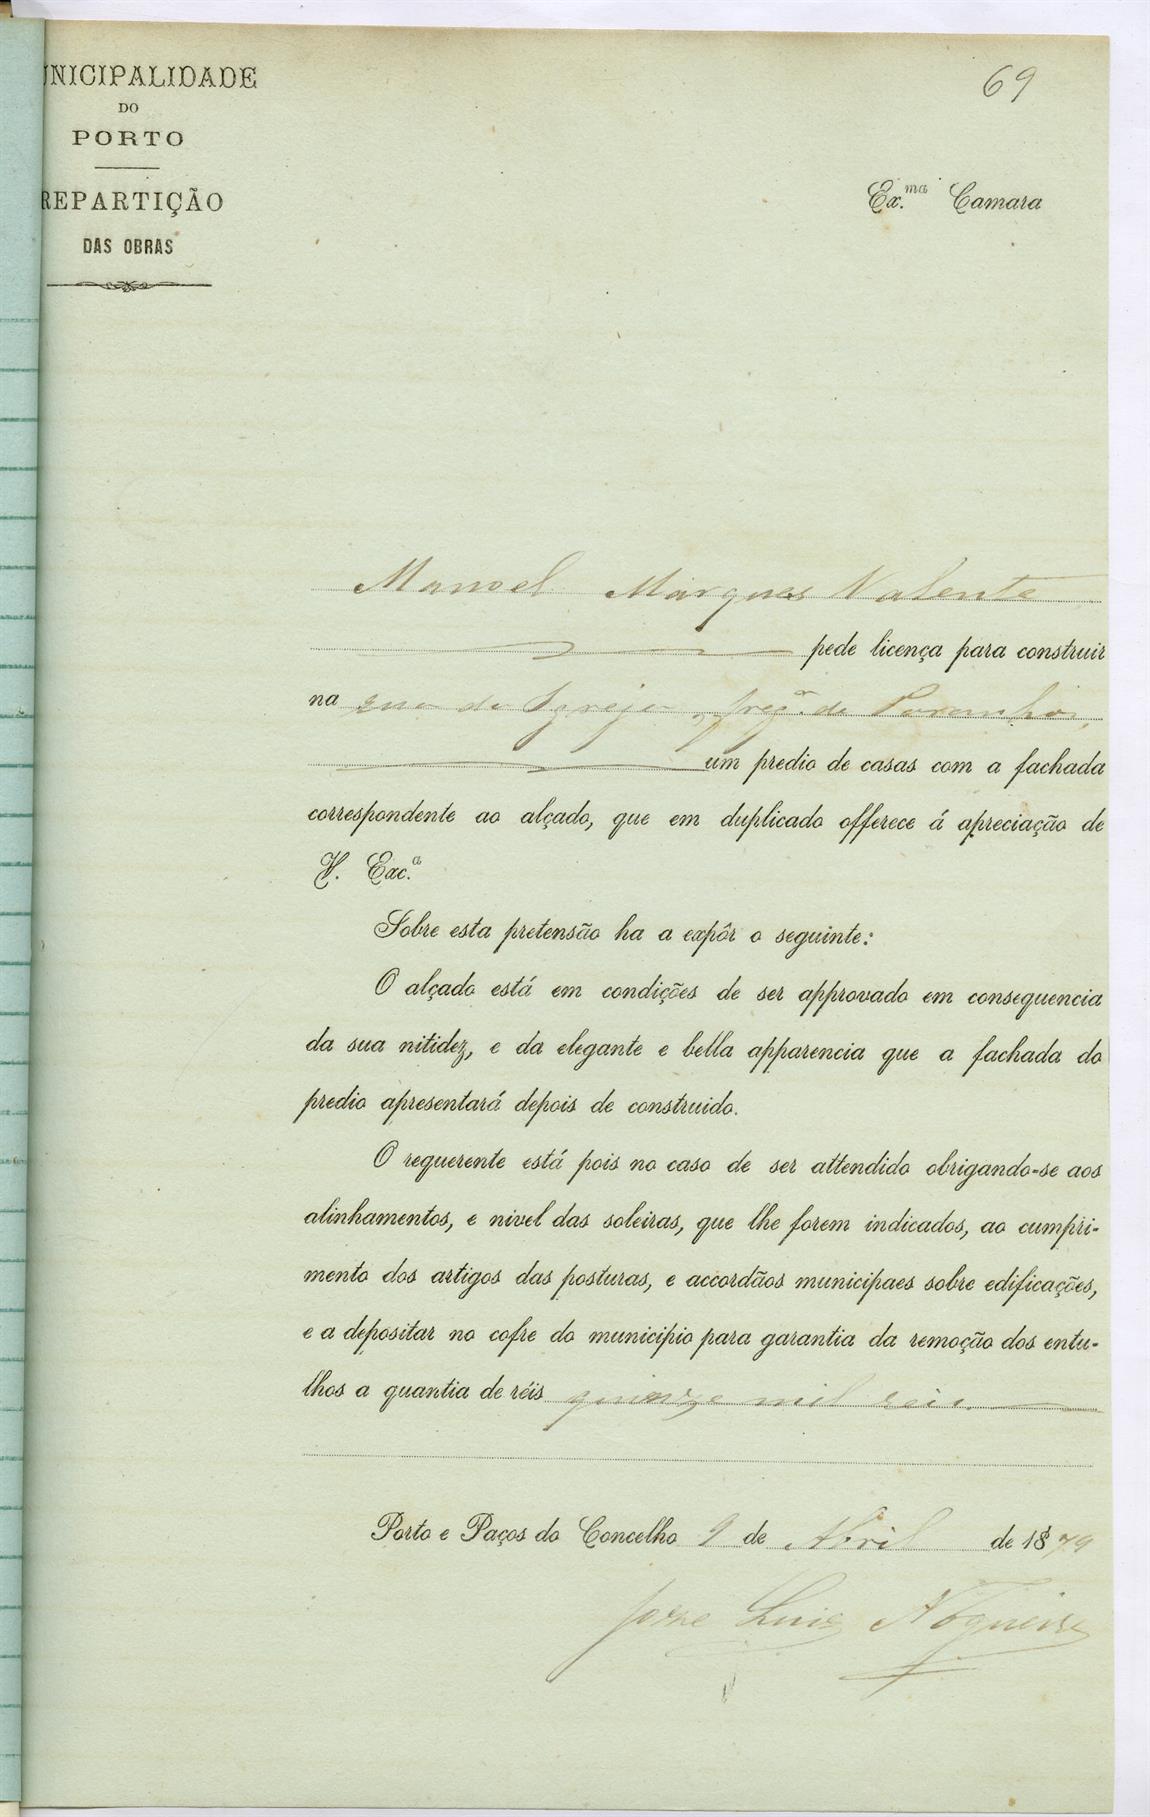 UNICIPALIDADE
DO
PORTO
REPARTIÇÃO
DAS OBRAS
69
Ex.ma Camara
Manoel Marques Valente
pede licença para construir
na rua da Igreja, freg.a de Paranhos,
um predio de casas com a fachada
correspondente ao alçado, que em duplicado offerece á apreciação de
V. Exc.a
Sobre esta pretensão ha a expôr o seguinte:
O alçado está em condições de ser approvado em consequencia
da sua nitidez, e da elegante e bella apparencia que a fachada do
predio apresentará depois de construido.
O requerente está pois no caso de ser attendido obrigando-se aos
alinhamentos, e nivel das soleiras, que lhe forem indicados, ao cumpri-
mento dos artigos das posturas, e accordãos municipaes sobre edificações,
e a depositar no cofre do municipio para garantia da remoção dos entu-
lhos a quantia de réis quinze mil reis.
Porto e Paços do Concelho 9 de Abril de 1879
Jose Luis Nogueira